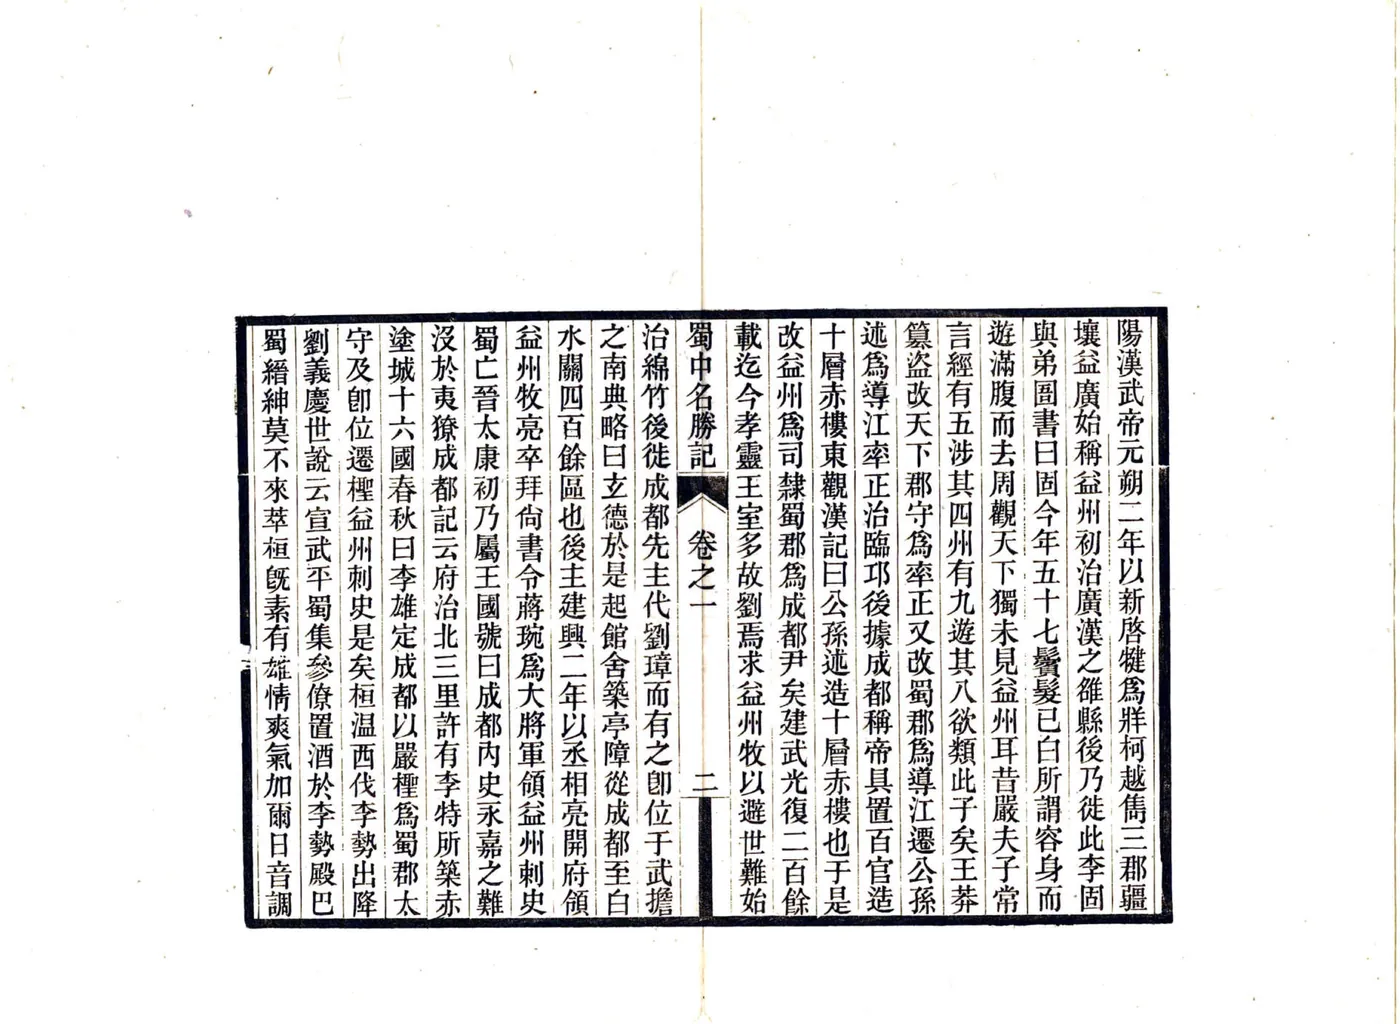 陽漢武帝元朔二年以新啓犍爲牂柯越雋三郡疆
壤益廣始稱益州初治廣漢之雒縣後乃徙此李固
與弟圄書曰固今年五十七鬢髮已白所謂容身而
遊滿腹而去周觀天下獨未見益州耳昔嚴夫子常
言經有五涉其四州有九遊其八欲類此子矣王莽
篡盜改天下郡守爲率正又改蜀郡爲導江遷公孫
述爲導江率正治臨邛後據成都稱帝具置百官造
十層赤樓東觀漢記曰公孫述造十層赤樓也于是
改益州爲司隸蜀郡爲成都尹矣建武光復二百餘
載迄今孝靈王室多故劉焉求益州牧以避世難始
蜀中名勝記 卷之一 二
治綿竹後徙成都先主代劉璋而有之卽位于武擔
之南典略曰玄德於是起館舍築亭障從成都至白
水關四百餘區也後主建興二年以丞相亮開府領
益州牧亮卒拜尙書令蔣琬爲大將軍領益州刺史
蜀亡晉太康初乃屬王國號曰成都內史永嘉之難
沒於夷獠成都記云府治北三里許有李特所築赤
塗城十六國春秋曰李雄定成都以嚴檉爲蜀郡太
守及卽位遷檉益州刺史是矣桓温西伐李勢出降
劉義慶世說云宣武平蜀集參僚置酒於李勢殿巴
蜀縉紳莫不來萃桓旣素有雄情爽氣加爾日音調